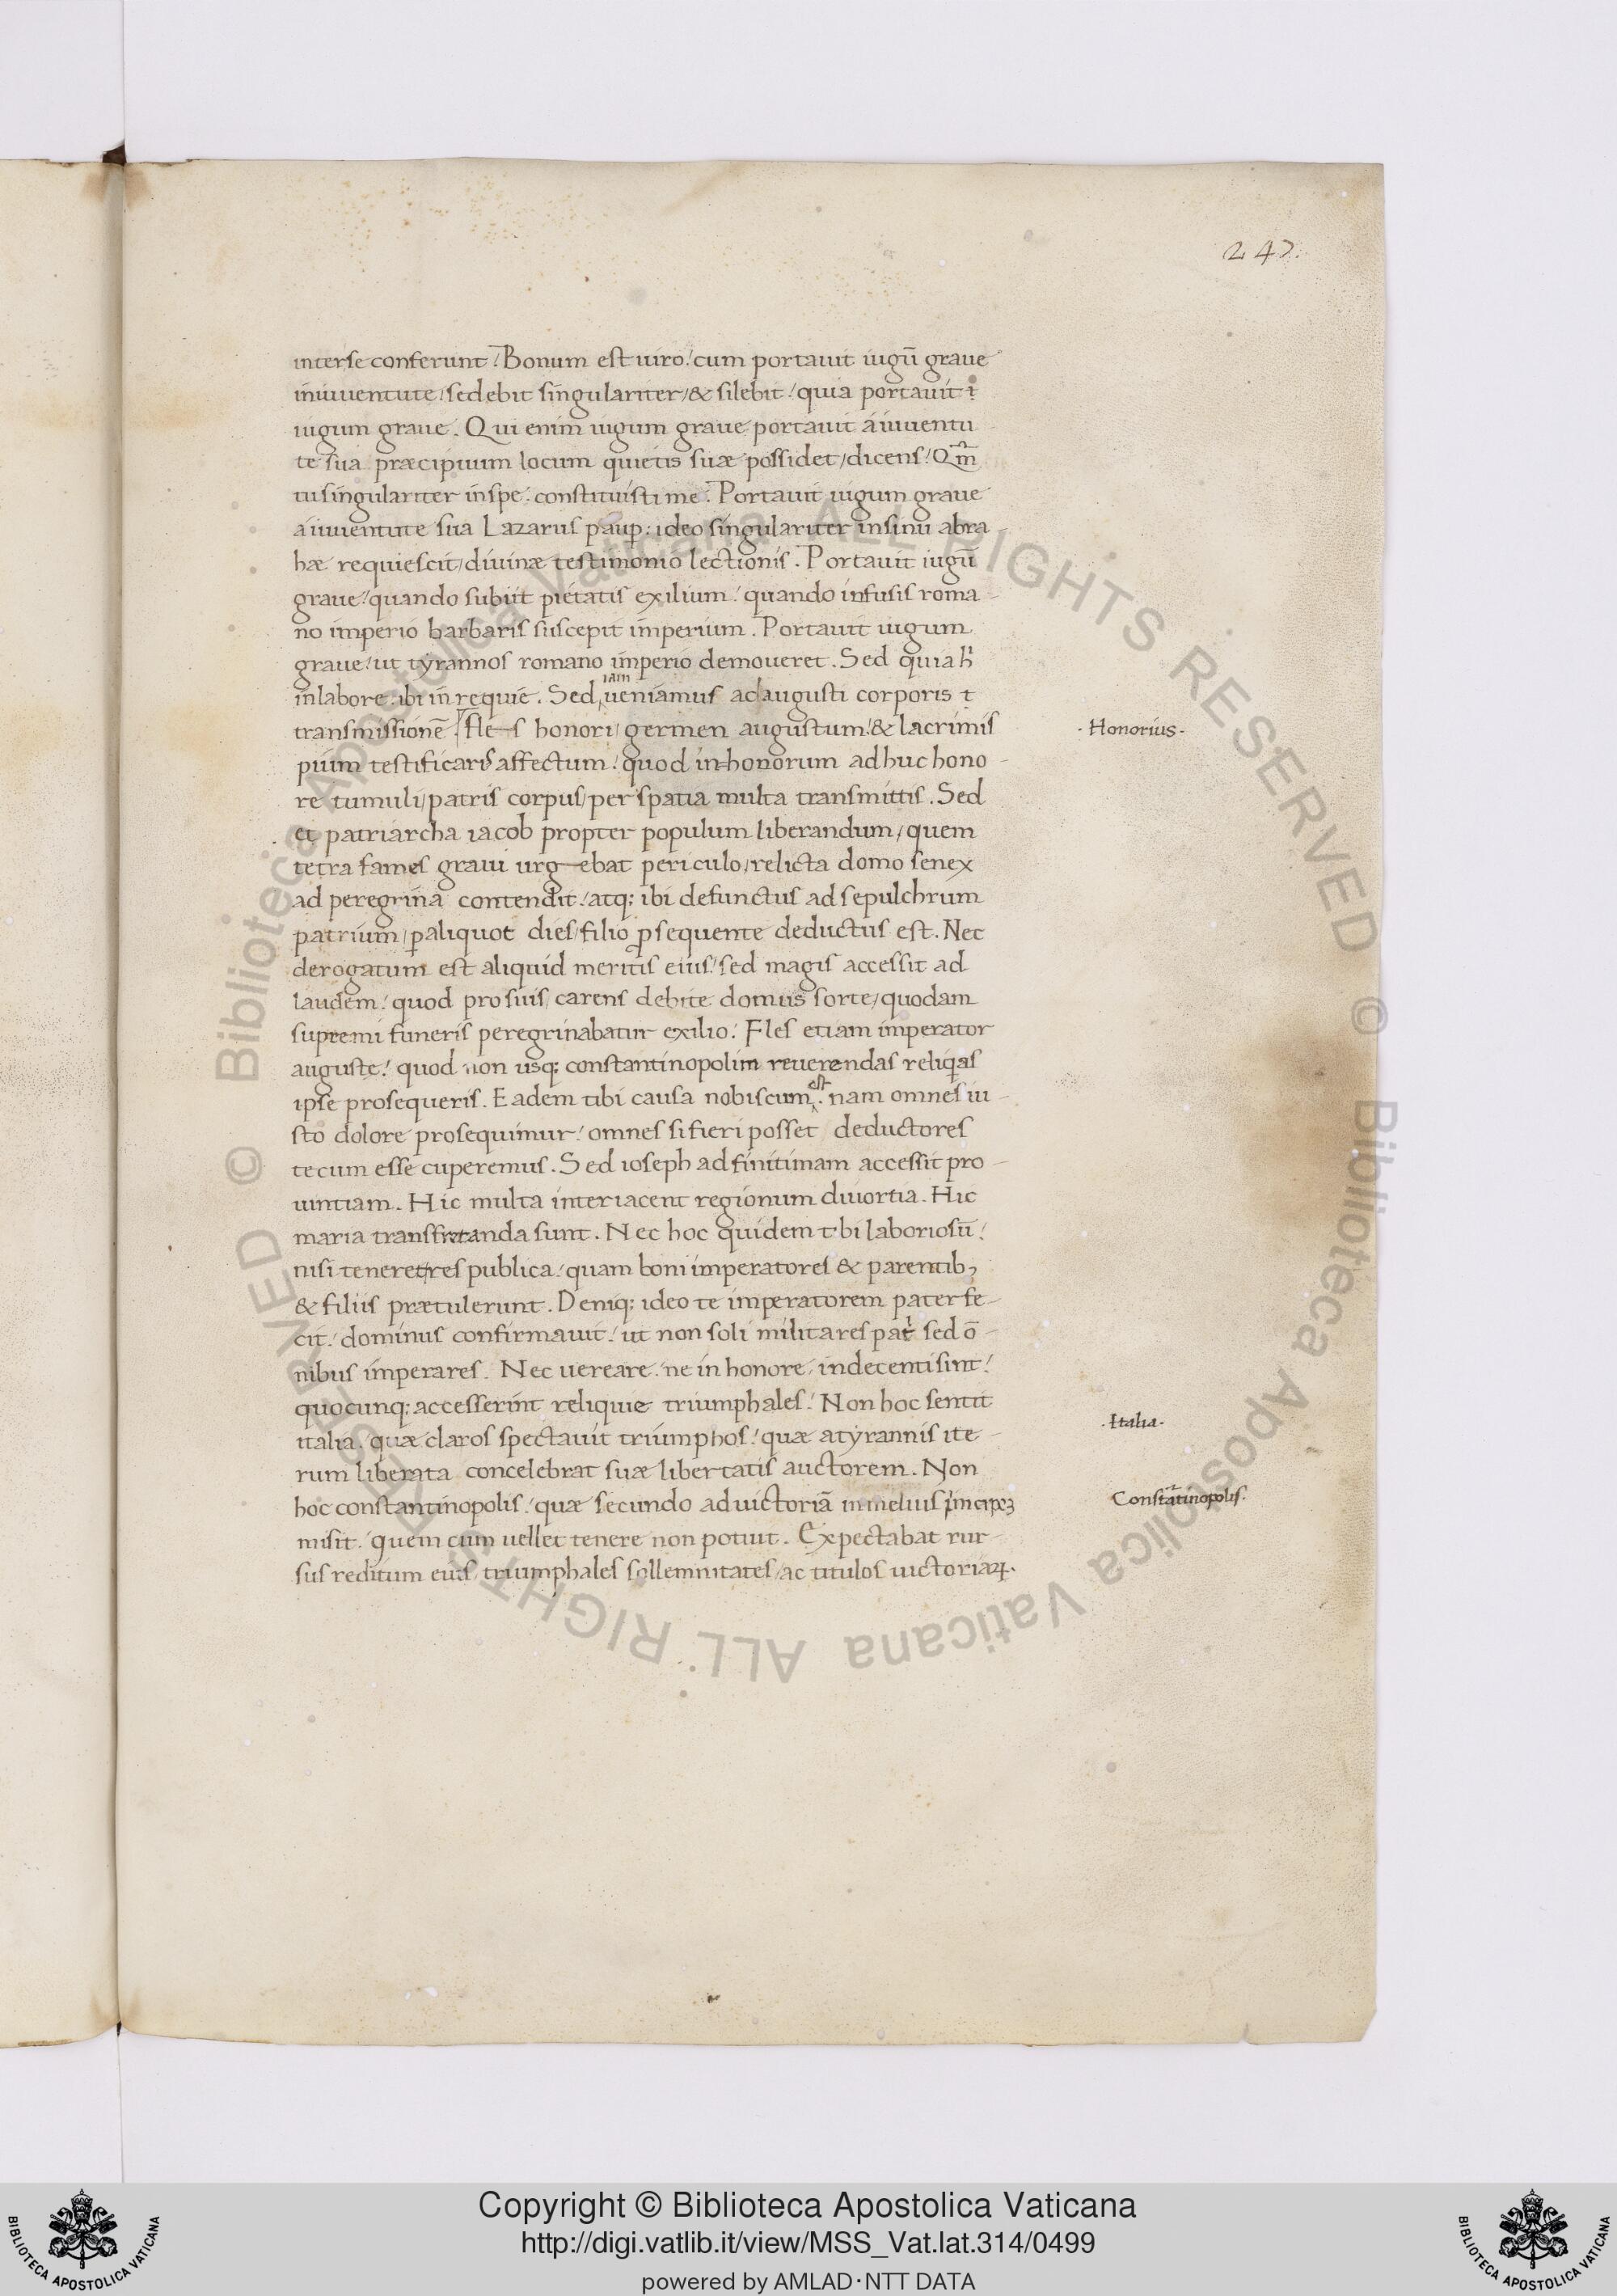 247.
interse conferunt / Bonum est uiro / cum portauit iugū graue
iniuuentute / sedebit singulariter / & silebit / quia portauit
iugum graue . Qui enim iugum graue portauit a iuuentu
te sua præcipuum locum quietis suæ possidet / dicens / Qm̄
tu singulariter inspe constituisti me . Portauit iugum graue
a iuuentute sua Lazarus paup̱ : ideo singulariter insinu abra
hæ requiescit / diuinæ testimonio lectionis . Portauit iugū
graue / quando subiit pietatis exilium / quando infusis roma -
no imperio barbaris suscepit imperium . Portauit iugum
graue / ut tyrannos romano imperio demoueret . Sed quia h̄
inlabore : ibi in requiē . Sed iam ueniamus ad augusti corporis
transmissionē . Fles honori / germen augustum / & lacrimis
pium testificaris affectum / quod in honorum adhuc hono -
re tumuli / patris corpus / per spatia multa transmittis . Sed
et patriarcha iacob propter populum liberandum / quem
tetra fames graui urgebat periculo / relicta domo senex
ad peregrina contendit / atq; ibi defunctus ad sepulchrum
patrium / p̱ aliquot dies / filio ꝓsequente deductus est . Nec
derogatum est aliquid meritis eius / sed magis accessit ad
laudem / quod pro suis / carens debite domus sorte / quodam
supremi funeris peregrinabatur exilio / Fles etiam imperator
auguste / quod non usq; constantinopolim reuerendas reliqias
ipse prosequeris . Eadem tibi causa nobiscum est . nam omnes iu -
sto dolore prosequimur / omnes si fieri posset deductores
tecum esse cuperemus . Sed ioseph ad finitimam accessit pro -
uintiam . Hic multa interiacent regionum diuortia . Hic
maria transfretanda sunt . Nec hoc quidem tibi laboriosū /
nisi teneret res publica / quam boni imperatores & parentib;
& filiis prætulerunt . Deniq; ideo te imperatorem pater fe -
cit / dominus confirmauit / ut non soli militares patri sed ō -
nibus imperares . Nec uereare / ne in honore indecenti sint /
quocunq; accesserint reliquie triumphales / Non hoc sentit
italia / quæ claros spectauit triumphos / quæ a tyrannis ite -
rum liberata concelebrat suæ libertatis auctorem . Non
hoc constantinopolis / quæ secundo ad uictoriā in melius
misit / quem cum uellet tenere non potuit . Expectabat rur -
sus reditum eius / triumphales sollemnitates / ac titulos uictoriaꝝ .
. Honorius .
. Italia .
Constātinopolis .
© Biblioteca Apostolica Vaticana ALL RIGHTS RESERVED © Biblioteca Apostolica Vaticana ALL RIGHTS RESERVED
Copyright © Biblioteca Apostolica Vaticana
http://digi.vatlib.it/view/MSS_Vat.lat.314/0499
powered by AMLAD·NTT DATA
BIBLIOTECA APOSTOLICA VATICANA
BIBLIOTECA APOSTOLICA VATICANA